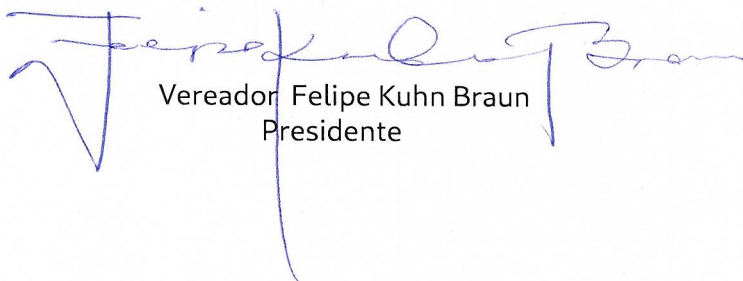 Felipe Kuhn Braun
Vereador Felipe Kuhn Braun
Presidente